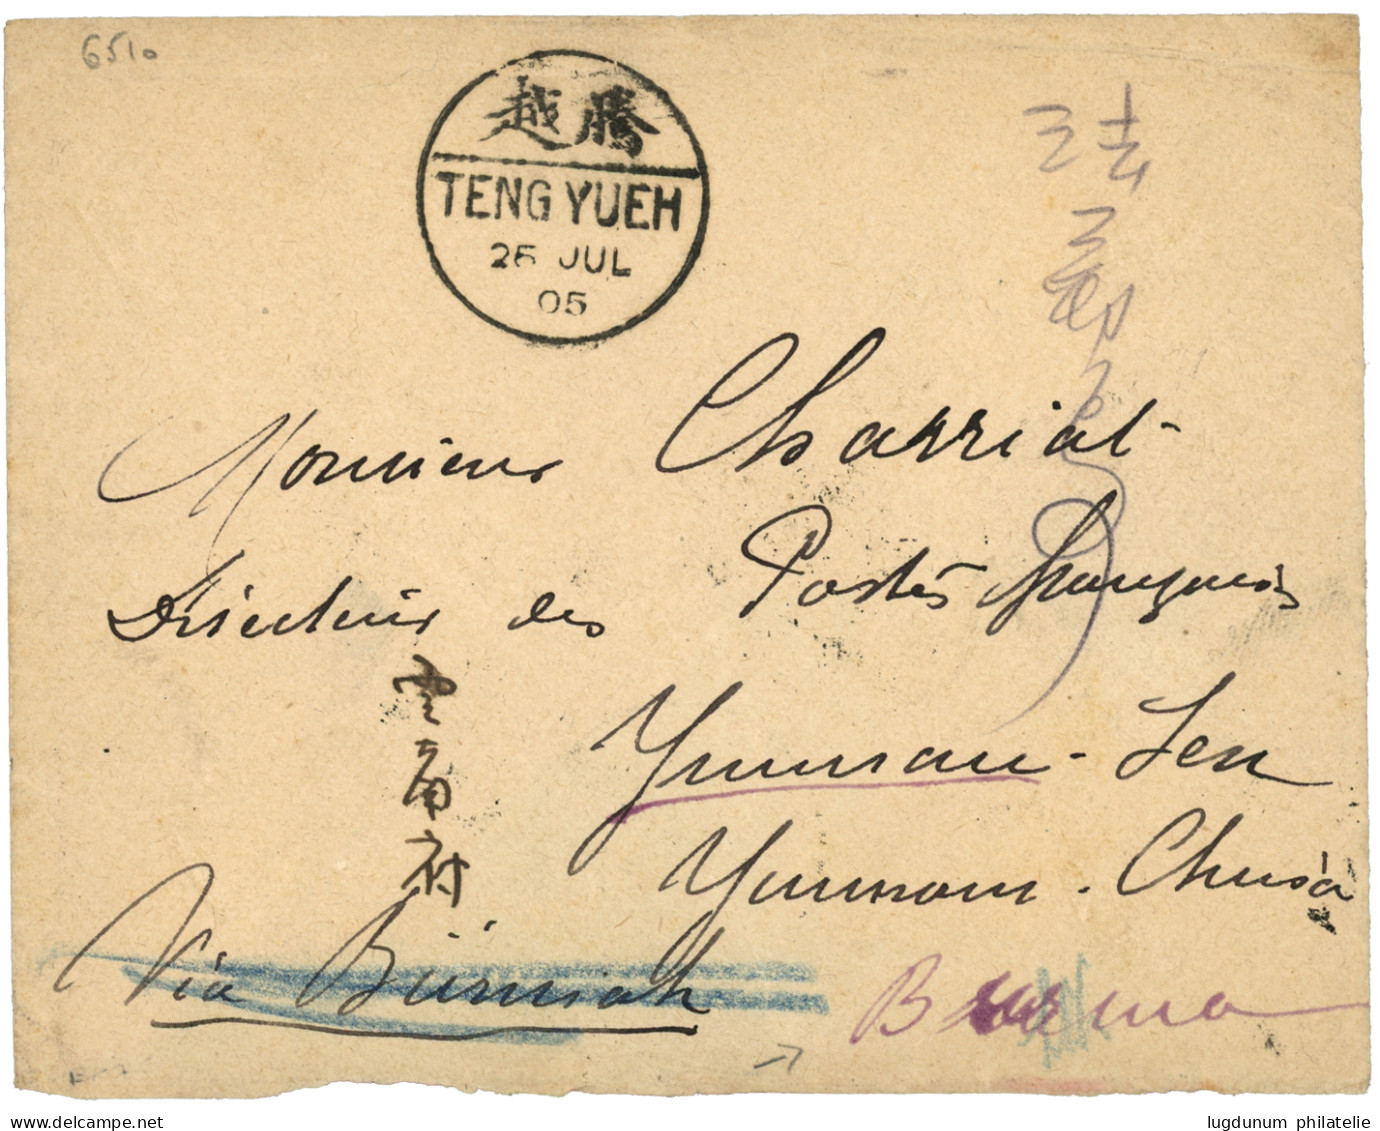 6510
越騰
TENG YUEH
26 JUL
05
Monsieur Charriat
Directeur des Postes françaises
雲南府
Yunnan-Sen
Yunnam. China
Via Birmah
Burma
lugdunum philatelie